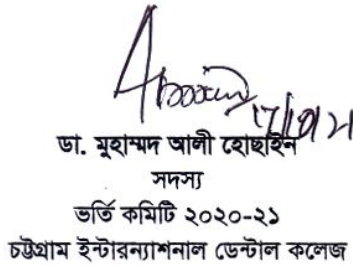 ডা. মুহাম্মদ আলী হোছাইন
সদস্য
ভর্তি কমিটি ২০২০-২১
চট্টগ্রাম ইন্টারন্যাশনাল ডেন্টাল কলেজ